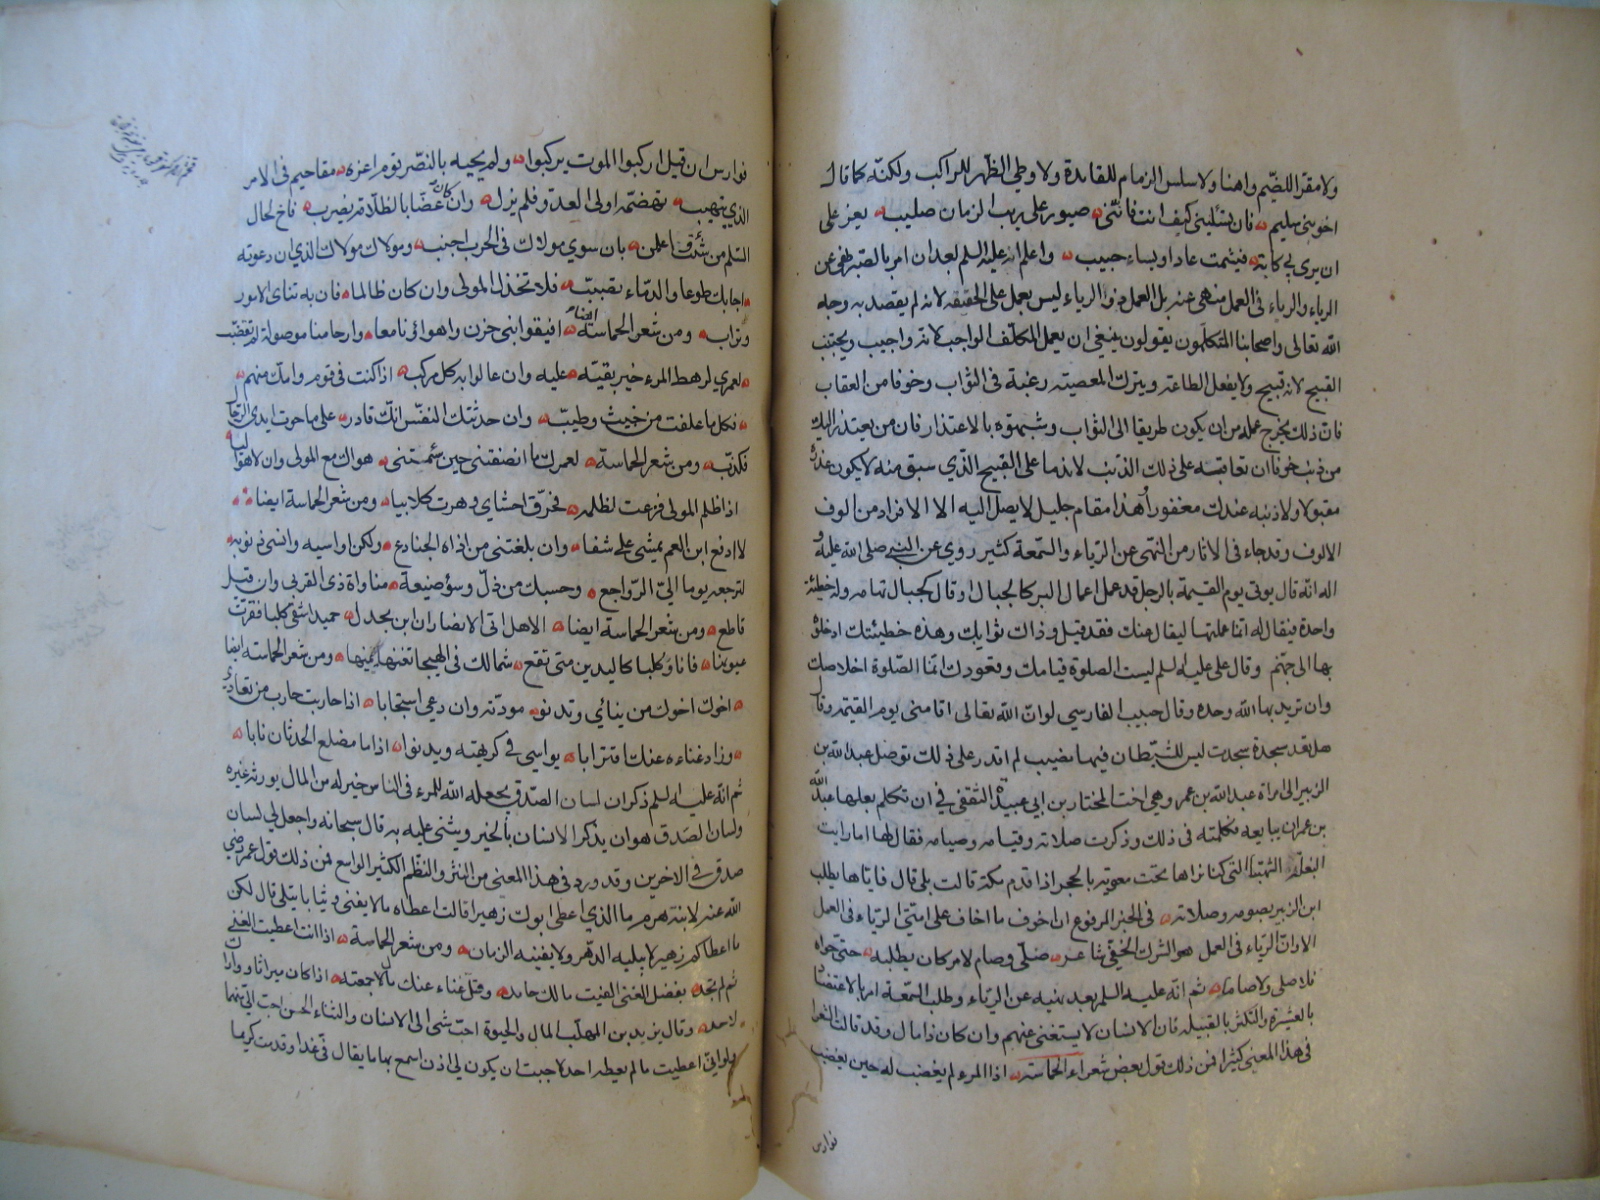 ولا مقرا للضيم واهنا ولا سلس الزمام للقائد ولا وطي الظهر للراكب ولكنه كما قال
اخو بني سليم فان تسئليني كيف انت فانني صبور على ريب الزمان صليب يعز على
ان يرى بي كابة فيشمت عاد او يساء حبيب واعلم انه عليه السلم بعد ان امر بالصبر نهى عن
الرياء والرياء في العمل منهى عنه بل العمل ذو الرياء ليس بعمل على الحقيقه لانه لم يقصد به وجه
الله تعالى واصحابنا المتكلمون يقولون ينبغي ان يعمل المكلف الواجب لانه واجب ويجتنب
القبيح لانه قبيح ولا يفعل الطاعة ويترك المعصية رغبة في الثواب وخوفا من العقاب
فان ذلك يخرج عمله من ان يكون طريقا الى الثواب وشبهوه بالاعتذار فان من يعتذر اليك
من ذنب خوفا ان تعاقبه على ذلك الذنب لا ندما على القبيح الذي سبق منه لا يكون عذره
مقبولا ولا ذنبه عندك مغفورا وهذا مقام جليل لا يصل اليه الا الافراد من الوف
الالوف وقد جاء في الاثار من النهى عن الرياء والسمعة كثير روي عن النبي صلى الله عليه و
اله انه قال يوتي يوم القيمة بالرجل قد عمل اعمال البر كالجبال او قال كجبال تهامه وله خطيئة
واحدة فيقال له انما عملتها ليقال عنك فقد قيل وذاك ثوابك وهذه خطيئتك ادخلوه
بها الى جهنم وقال على عليه السلم ليست الصلوة قيامك وقعودك انما الصلوة اخلاصك
وان تريد بها الله وحده وقال حبيب الفارسي لو ان الله تعالى اقامني يوم القيمة وقال
هل تعد سجدة سجدت ليس للشيطان فيها نصيب لم اقدر على ذلك توصل عبد الله بن
الزبير الى امراة عبد الله بن عمر وهي اخت المختار بن ابي عبيدة الثقفي في ان تكلم بعلها عبد الله
بن عمر ان يبايعه فكلمته في ذلك وذكرت صلاته وقيامه وصيامه فقال لها اما رايت
البغلة الشهباء التي كنا نراها تحت معوية بالحجر اذا قدم مكة قالت بلى قال فاياها يطلب
ابن الزبير بصومه وصلاته في الخبر المرفوع ان اخوف ما اخاف على امتي الرياء في العمل
الا وان الرياء في العمل هو الشرك الخفي شاعر صلى وصام لامر كان يطلبه حتى حواه
فلا صلى ولا صاما ثم انه عليه السلم بعد نهيه عن الرياء وطلب السمعة امر بالاعتضاد
بالعشيرة والتكثر بالقبيله فان الانسان لا يستغنى عنهم وان كان ذا مال وقد قالت الشعرا
في هذا المعنى كثيرا فمن ذلك قول بعض شعراء الحماسة اذا المرء لم يغضب له حين يغضب
فوارس
فوارس ان قيل اركبوا الموت يركبوا ولم يحبه بالنصر قوم اعزه مقاحيم في الامر
الذي يتهيب تهضمه اولى العدو فلم يزل وان كان عضا بالظلامة يضرب فاخ لحال
السلم من شئت واعلمن بان سوى مولاك في الحرب اجنب ومولاك مولاك الذي ان دعوته
اجابك طوعا والدماء تصبب فلا تخذل المولى وان كان ظالما فان به تثاى الامور
وتراب ومن شعر الحماسة ايضا افيقوا بني حزن واهواؤنا معا وارحامنا موصولة لم تقضب
لعمري لرهط المرء خير بقية عليه وان عالوا به كل مركب اذا كنت في قوم وامك منهم
فكل ما علفت من خبيث وطيب وان حدثتك النفس انك قادر على ما حوت ايدي الرجال
فكذب ومن شعر الحماسة لعمرك ما انصفتني حين سمتني هواك مع المولى وان لا هوا ليا
اذا ظلم المولى فزعت لظلمه فحرق احشاي وهرت كلابيا ومن شعر الحماسة ايضا
لا ادفع ابن العم يمشي على شفا وان بلغتني من اذاه الجنادع ولكن اواسيه وانسى ذنوبه
لترجعه يوما الي الرواجع وحسبك من ذل وسؤ صنيعة مناواة ذي القربى وان قيل
قاطع ومن شعر الحماسة ايضا الا هل اتى الانصار ان ابن بجدل حميدا شفى كلبا فقرت
عيونها فانا وكلبا كاليدين متى تقع شمالك في الهيجا تعنها يمينها ومن شعر الحماسة ايضا
اخوك اخوك من ينائي وتدنو مودته وان دعي استجابا اذا حاربت حارب من تعادي
وزاد غناءه عنك اقترابا يواسي في كريهته ويدنوا اذا ما مضلع الحدثان نابا
ثم انه عليه السلم ذكر ان لسان الصدق يجعله الله للمرء في الناس خير له من المال يورثه غيره
ولسان الصدق هو ان يذكر الانسان بالخير ويثنى عليه به قال سبحانه واجعل لي لسان
صدق في الاخرين وقد ورد في هذا المعنى من النثر والنظم الكثير الواسع فمن ذلك قول عمر رضي
الله عنه لابنة هرم ما الذي اعطى ابوك زهيرا قالت اعطاه مالا يفنى وثيابا يبلى قال لكن
ما اعطاكم زهير لا يبليه الدهر ولا يفنيه الزمان ومن شعر الحماسة اذا انت اعطيت الغنى
ثم لم تجد بفضل الغنى الفيت مالك حامد وقل غناء عنك مال جمعته اذا كان ميراثا و واراك
لاحد وقال يزيد بن المهلب المال والحيوة احب شيء الى الانسان والثناء الحسن احب الي منهما
ولو اني اعطيت ما لم يعطه احد لاحببت ان يكون لي اذن اسمع بها ما يقال في غدا وقد مت كريما